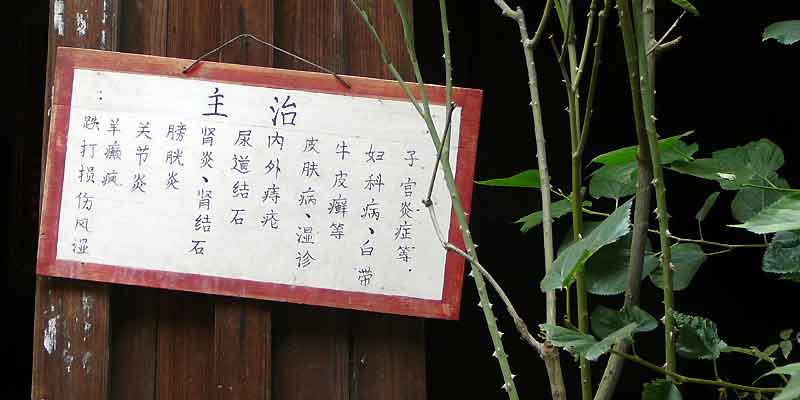 主治
：跌打损伤风湿.
羊癫疯
关节炎
膀胱炎
肾炎、肾结石
尿道结石
内外痔疮
皮肤病、湿诊
牛皮癣等
妇科病、白带
子宫炎症等.